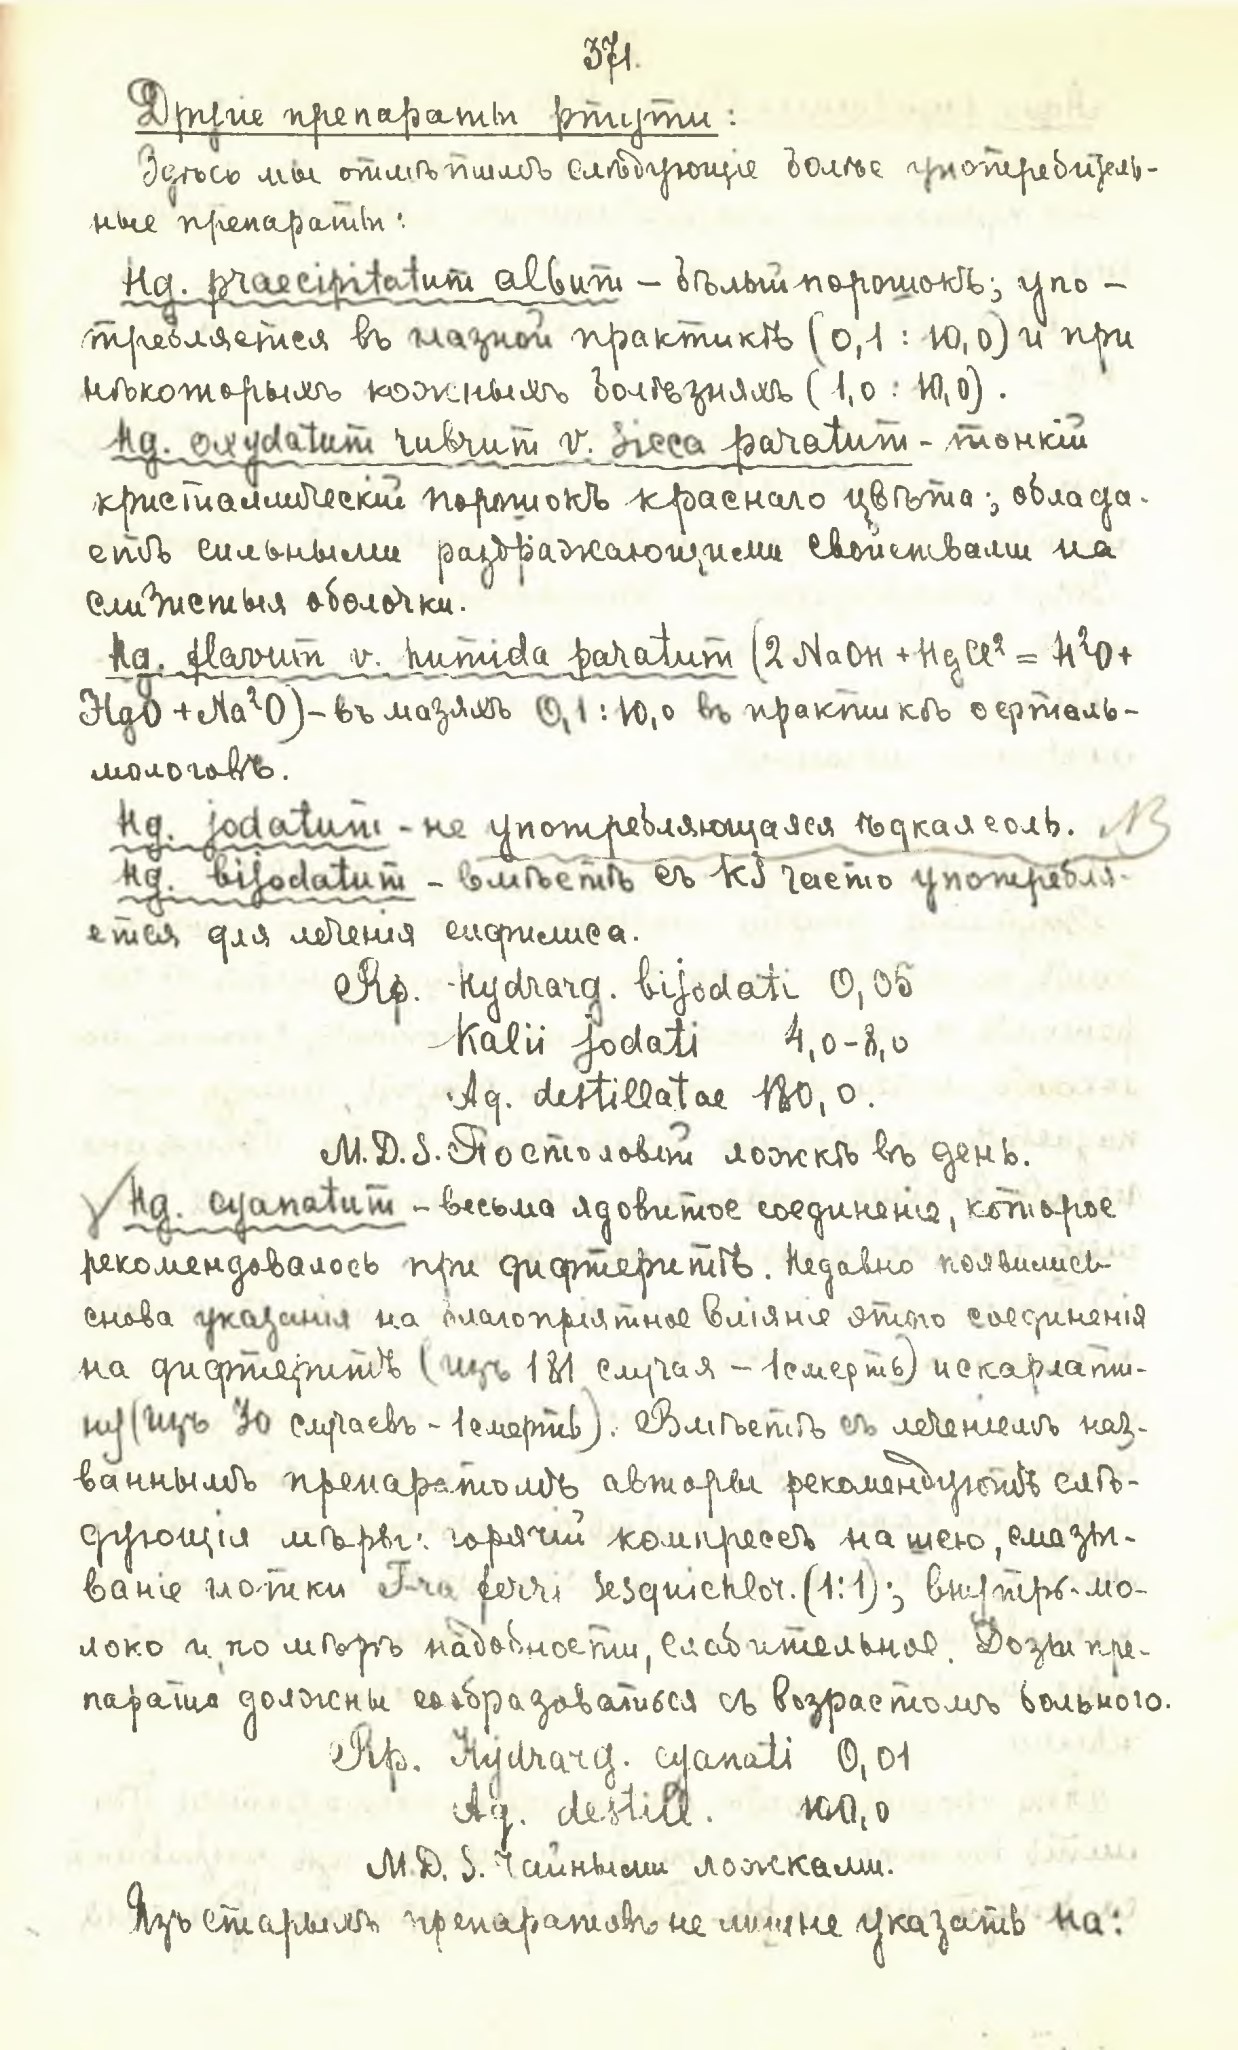 371.
Другіе препараты ртути:
Здѣсь мы отмѣтимъ слѣдующіе болѣе употребитель-
ные препараты:
Hg. praecipitatum album – бѣлый порошокъ; упо-
требляется въ глазной практикѣ (0,1 : 10,0) и при
нѣкоторыхъ кожныхъ болѣзняхъ (1,0 : 10,0).
Hg. oxydatum rubrum v. sicca paratum – тонкій
кристаллическій порошокъ краснаго цвѣта; облада-
етъ сильными раздражающими свойствами на
слизистыя оболочки.
Hg. flavum v. humida paratum (2 NaOH + HgCl² = H²O +
HgO + Na²O) – въ мазяхъ 0,1 : 10,0 въ практикѣ офталь-
мологовъ.
Hg. jodatum – не употребляющаяся ѣдкая соль. NB
Hg. bijodatum – вмѣстѣ съ KJ часто употребля-
ется для леченія сифилиса.
Rp. Hydrarg. bijodati 0,05
Kalii jodati 4,0 – 8,0
Aq. destillatae 180,0.
M.D.S. По столовой ложкѣ въ день.
Hg. cyanatum – весьма ядовитое соединеніе, которое
рекомендовалось при дифтеритѣ. Недавно появились
снова указанія на благопріятное вліяніе этого соединенія
на дифтеритъ (изъ 181 случая – 1 смерть) и скарлати-
ну (изъ 30 случаевъ – 1 смерть). Вмѣстѣ съ леченіемъ наз-
ваннымъ препаратомъ авторы рекомендуютъ слѣ-
дующія мѣры: горячій компрессъ на шею, смазы-
ваніе глотки T-ra ferri sesquichlor. (1:1); внутрь - мо-
локо и, по мѣрѣ надобности, слабительное. Дозы пре-
парата должны сообразоваться съ возрастомъ больного.
Rp. Hydrarg. cyanati 0,01
Aq. destill. 100,0
M.D.S. Чайными ложками.
Изъ старыхъ препаратовъ не лишне указать на: